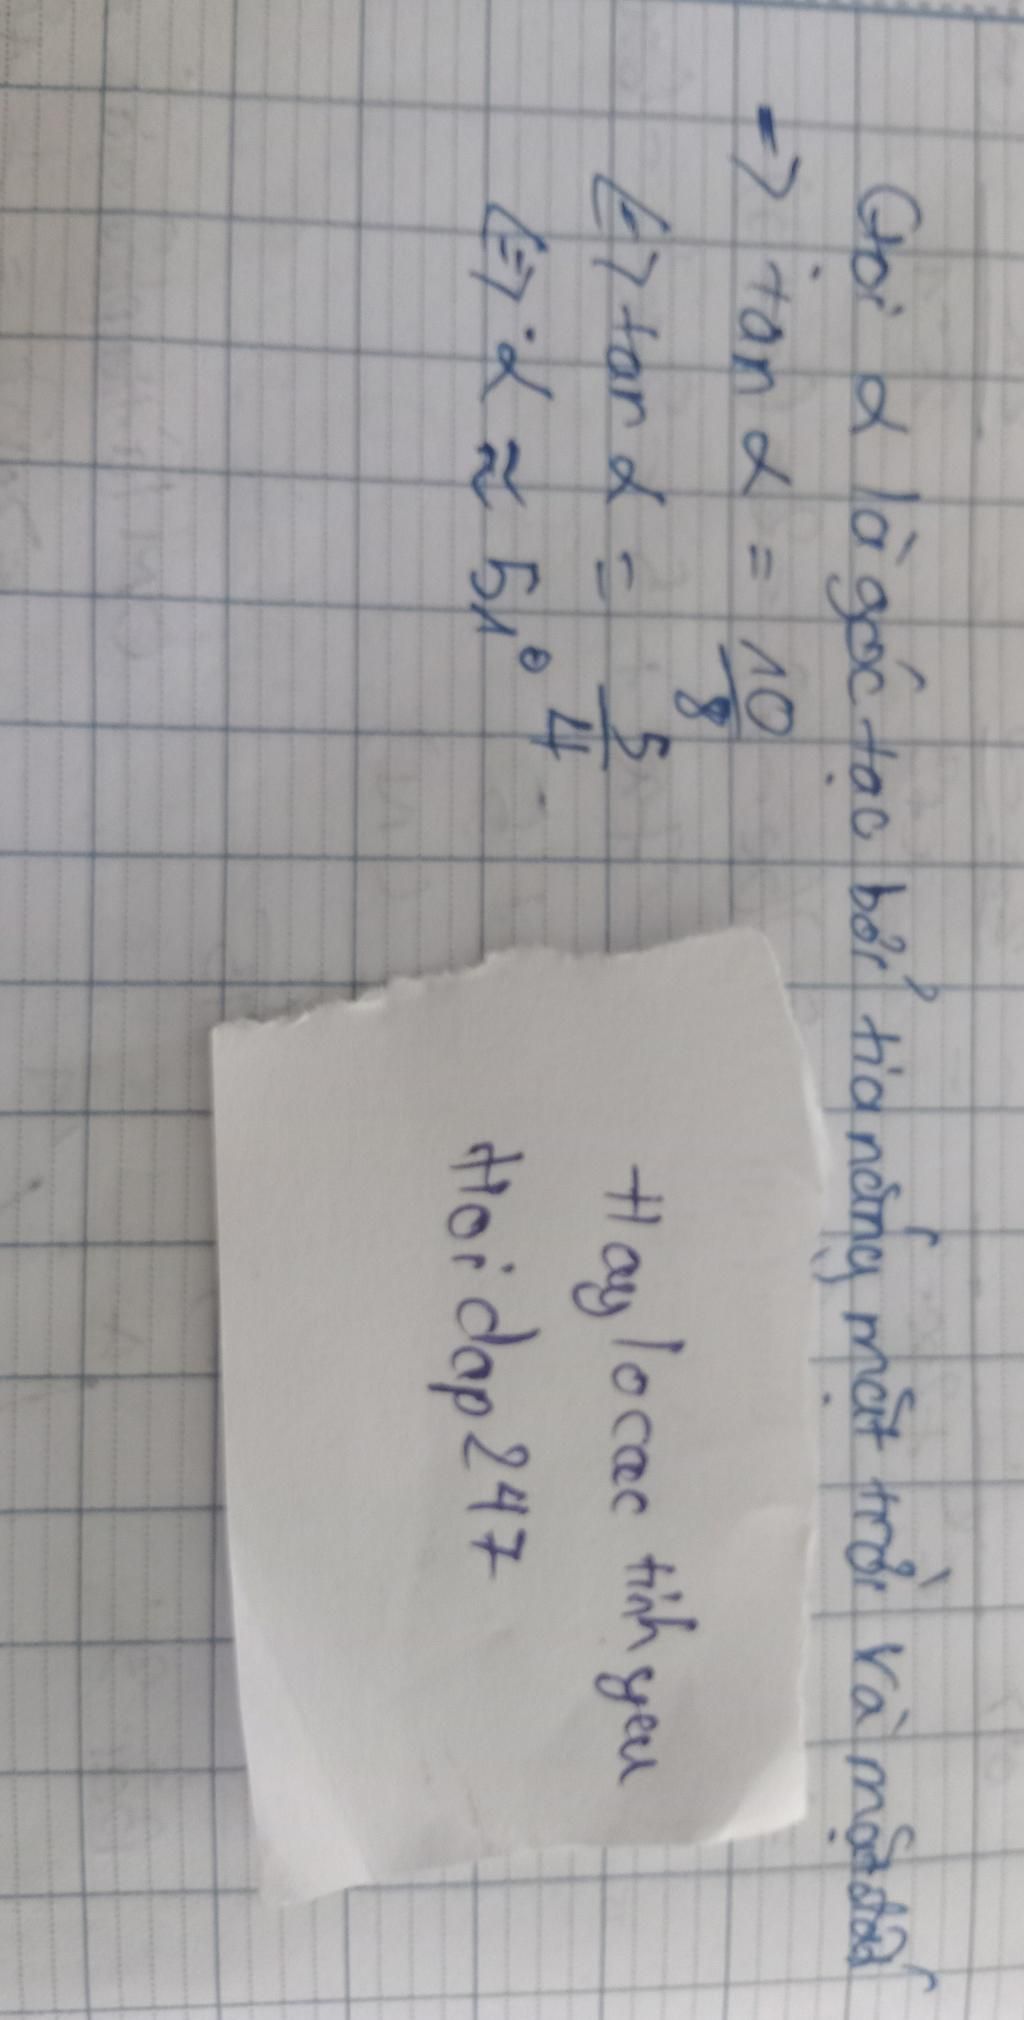 Gọi α là góc tạo bởi tia nắng mặt trời và mặt đất
=> tan α = 10/8
<=> tan α = 5/4
<=> α ≈ 51°
Hay lo cac tinh yeu
Hoi dap 247